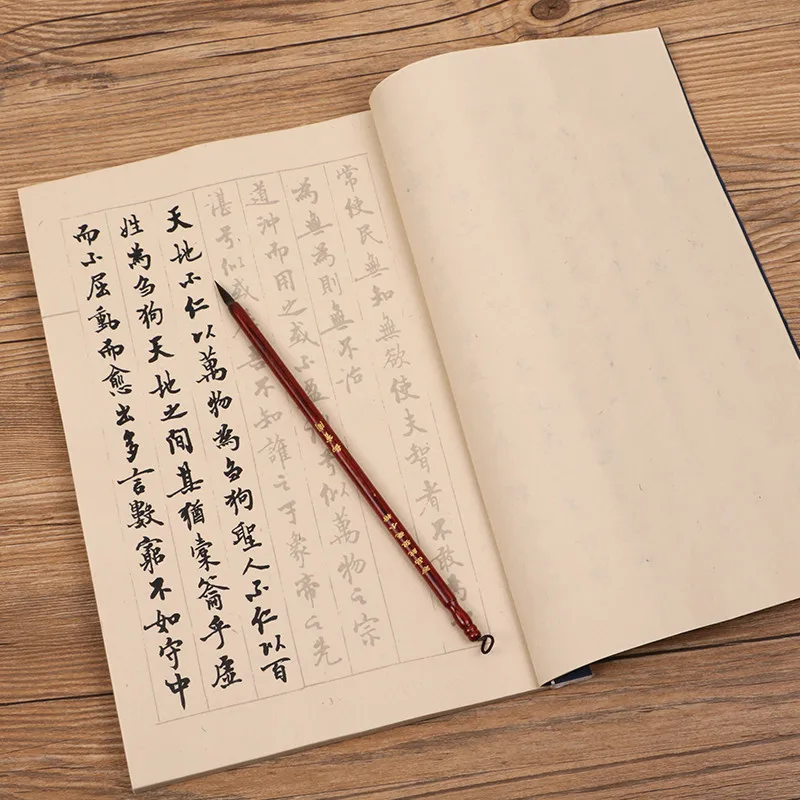 常使民無知無欲使夫智者不敢為
為無為則無不治
道沖而用之或不盈兮似萬物之宗
湛兮似或吾不知誰之子象帝之先
天地不仁以萬物為芻狗聖人不仁以百
姓為芻狗天地之間其猶橐籥乎虛
而不屈動而愈出多言數窮不如守中